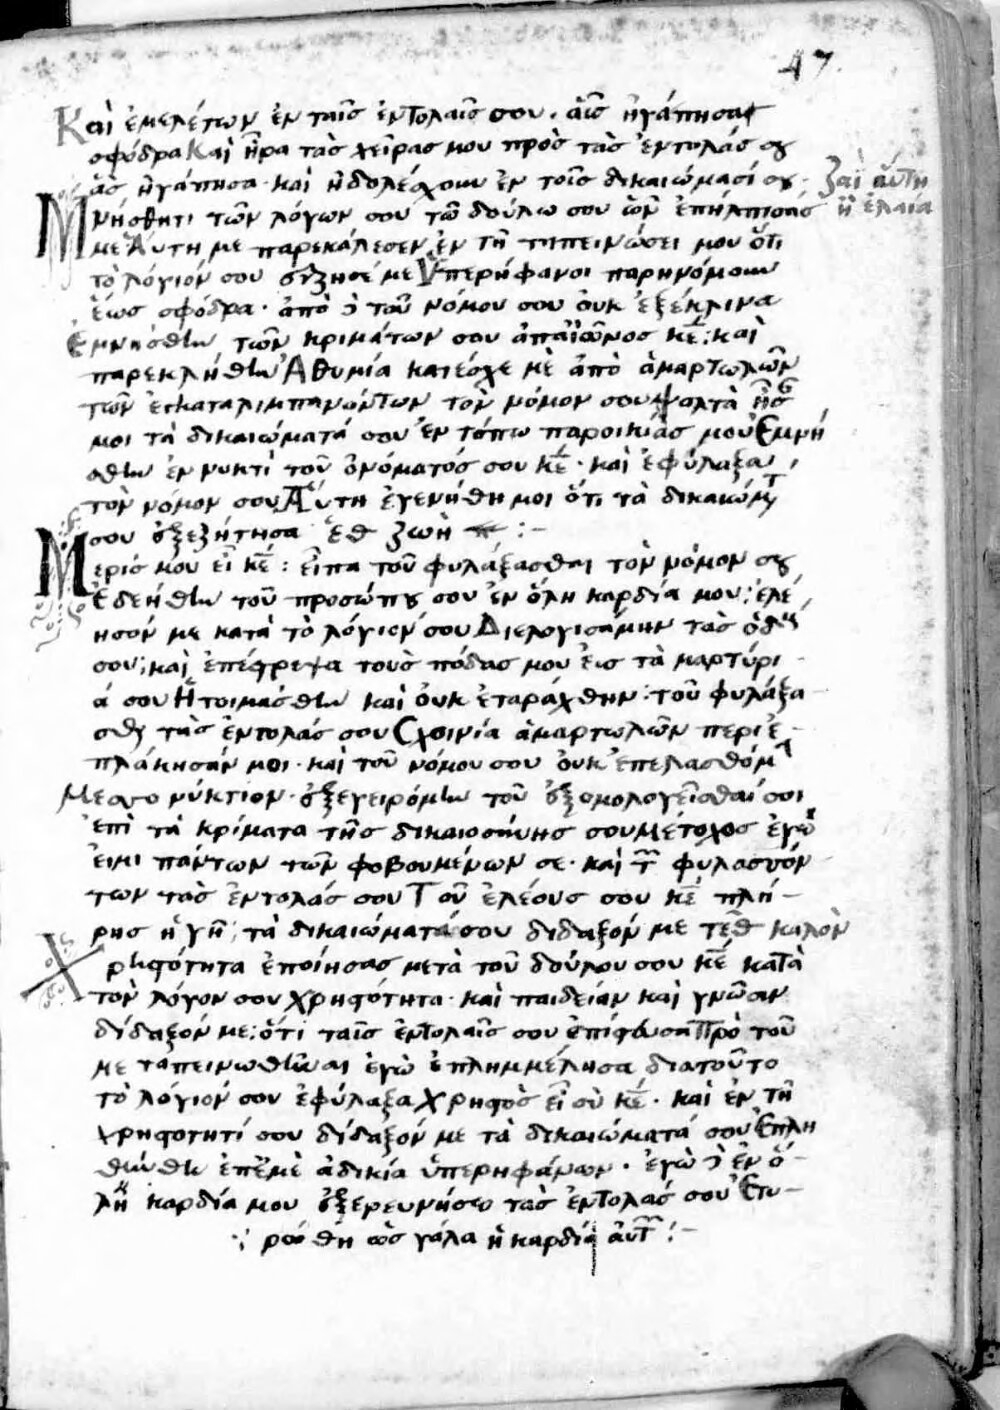 47.
Καὶ ἐμελέτων ἐν ταῖς ἐντολαῖς σου. αἷς ἠγάπησας
σφόδρα Καὶ ἦρα τὰς χεῖρας μου πρὸς τὰς ἐντολάς σου
ἃς ἠγάπησα· καὶ ἠδολέσχουν ἐν τοῖς δικαιώμασί σου· ζαὶ αὕτη
Μνήσθητι τῶν λόγων σου τῶ δούλω σου ὧν ἐπήλπισάς ἡ ἐλαία
με Αὕτη με παρεκάλεσεν ἐν τῆ ταπεινώσει μου ὅτι
τὸ λόγιόν σου ἔζησέ με Ὑπερήφανοι παρηνόμουν
ἕως σφόδρα· ἀπὸ δὲ τοῦ νόμου σου οὐκ ἐξέκλινα
Ἐμνήσθην τῶν κριμάτων σου ἀπαἰῶνος κε: καὶ
παρεκλήθην Ἀθυμία κατέσχε με ἀπὸ ἁμαρτωλῶν
τῶν ἐγκαταλιμπανόντων τὸν νόμον σου ψαλτὰ ἦσ
μοι τὰ δικαιώματά σου ἐν τόπω παροικίας μου Ἐμνή
σθην ἐν νυκτὶ τοῦ ὀνόματός σου κε· καὶ ἐφύλαξα
τὸν νόμον σου Αὕτη ἐγενήθη μοι ὅτι τὰ δικαιώμτ
σου ἐξεζήτησα ζωὴ :-
Μερίς μου εἶ κε: εἶπα τοῦ φυλάξασθαι τὸν νόμον σου
Ἐδεήθην τοῦ προσώπου σου ἐν ὅλη καρδία μου: ἐλέ
ησόν με κατὰ τὸ λόγιόν σου Διελογισάμην τὰς ὁδούς
σου; καὶ ἐπέστρεψα τοὺς πόδας μου εἰς τὰ μαρτύρι-
ά σου Ἡτοιμάσθην καὶ οὐκ ἐταράχθην: τοῦ φυλάξα-
σθαι τὰς ἐντολάς σου Σχοινία ἁμαρτωλῶν περιε-
πλάκησάν μοι· καὶ τοῦ νόμου σου οὐκ ἐπελαθόμ
Μεσονύκτιον· ἐξεγειρόμην τοῦ ἐξομολογεῖσθαί σοι
ἐπὶ τὰ κρίματα τῆς δικαιοσύνης σου Μέτοχος ἐγώ
εἰμι πάντων τῶν φοβουμένων σε· καὶ τ φυλασσόν-
των τὰς ἐντολάς σου Τοῦ ἐλέους σου κε πλή-
ρης ἡ γῆ; τὰ δικαιώματά σου δίδαξόν με καλὸν
Χρηστότητα ἐποίησας μετὰ τοῦ δούλου σου κε κατὰ
τὸν λόγον σου Χρηστότητα· καὶ παιδείαν καὶ γνῶσιν
δίδαξόν με: ὅτι ταῖς ἐντολαῖς σου ἐπίστευσα Πρὸ τοῦ
με ταπεινωθῆναι ἐγὼ ἐπλημμέλησα διατοῦτο
τὸ λόγιόν σου ἐφύλαξα Χρηστὸς εἶ σὺ κε· καὶ ἐν τῆ
χρηστότητί σου δίδαξόν με τὰ δικαιώματά σου Ἐπλη
θύνθη ἐπ᾽ ἐμὲ ἀδικία ὑπερηφάνων· ἐγὼ δὲ ἐν ὅ-
λη καρδία μου ἐξερευνήσω τὰς ἐντολάς σου Ἐτυ-
ρώθη ὡς γάλα ἡ καρδία αὐτ :-